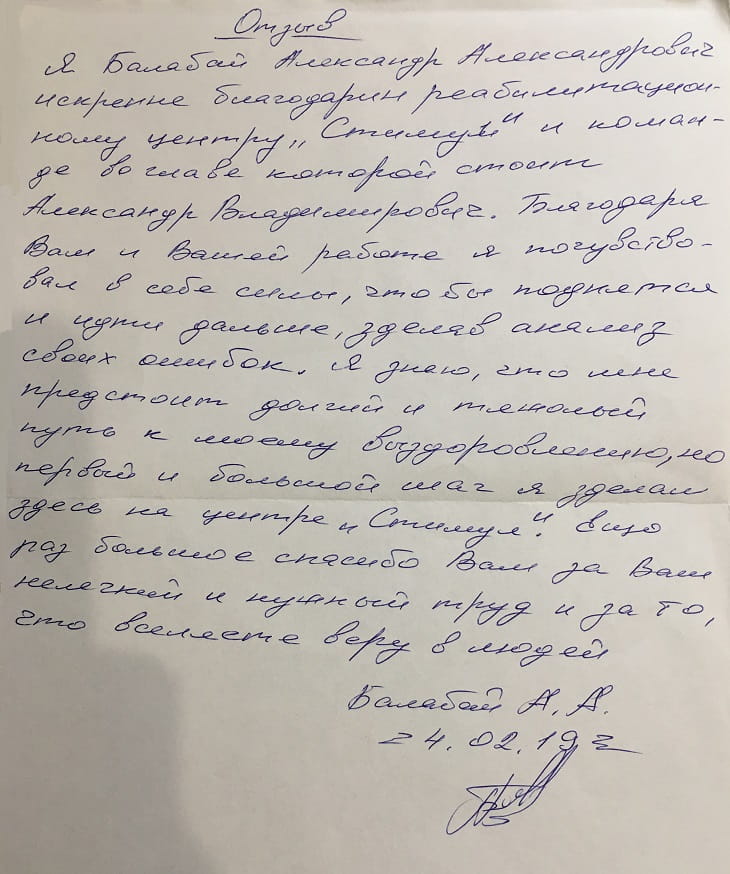 Отзыв
Я Балабай Александр Александрович
искренне благодарин реабилитацион-
ному центру „Стимул" и коман-
де во главе которой стоит
Александр Владимирович. Благодаря
Вам и Вашей работе я почувство-
вал в себе силы, что бы поднятся
и идти дальше, зделав анализ
своих ошибок. Я знаю, что мне
предстоит долгий и тяжолый
путь к моему выздоровлению, но
первый и большой шаг я зделал
здесь на центре „Стимул". Ещо
раз большое спасибо Вам за Ваш
нелегкий и нужный труд и за то,
что вселяете веру в людей
Балабай А. А.
24.02.19г